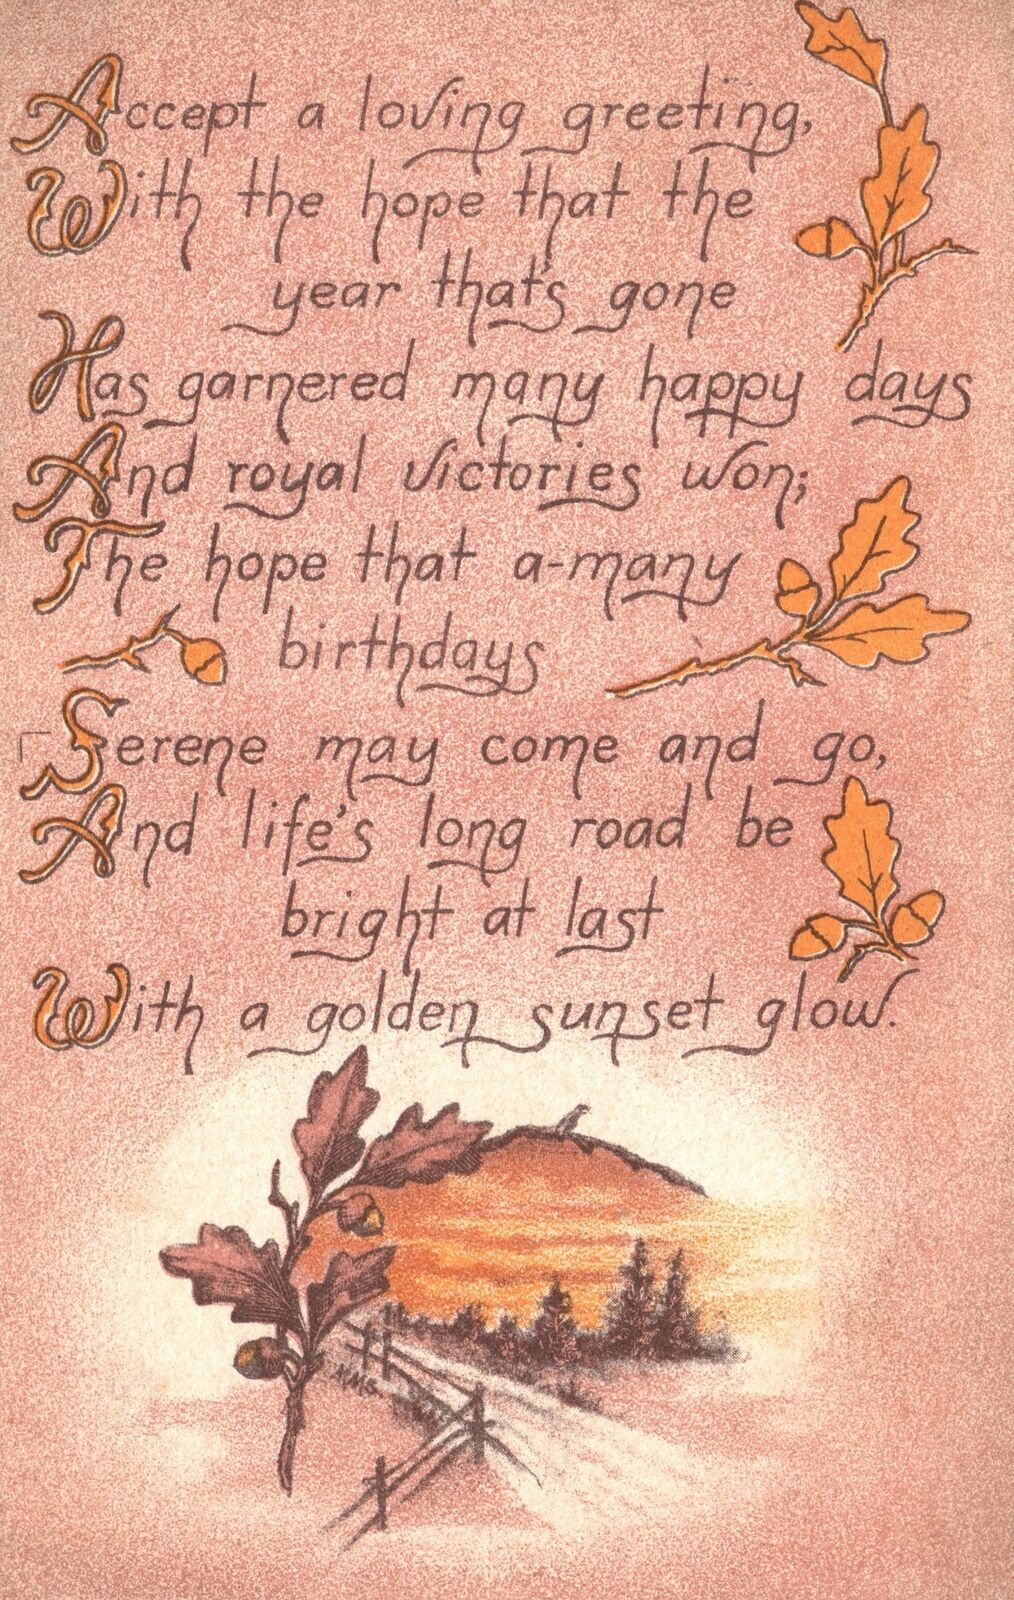 Accept a loving greeting,
With the hope that the
year that's gone
Has garnered many happy days
And royal victories won;
The hope that a-many
birthdays
Serene may come and go,
And life's long road be
bright at last
With a golden sunset glow.